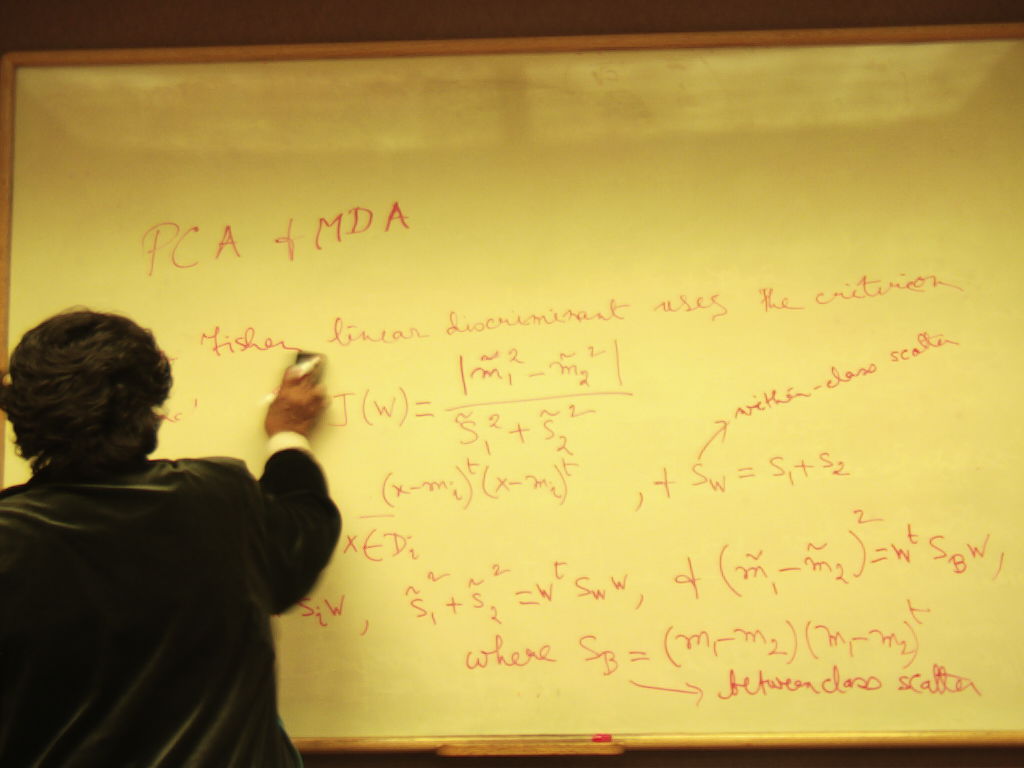 PCA & MDA
Fisher linear discriminant uses the criterion
J(W) = |m̃₁² - m̃₂²| / s̃₁² + s̃₂²
within-class scatter
(x-mᵢ)ᵗ(x-mᵢ)ᵗ , & S_W = S₁+S₂
x∈Dᵢ
SᵢW , s̃₁² + s̃₂² = Wᵗ S_W W, & (m̃₁-m̃₂)² = Wᵗ S_B W,
where S_B = (m₁-m₂)(m₁-m₂)ᵗ
→ between class scatter